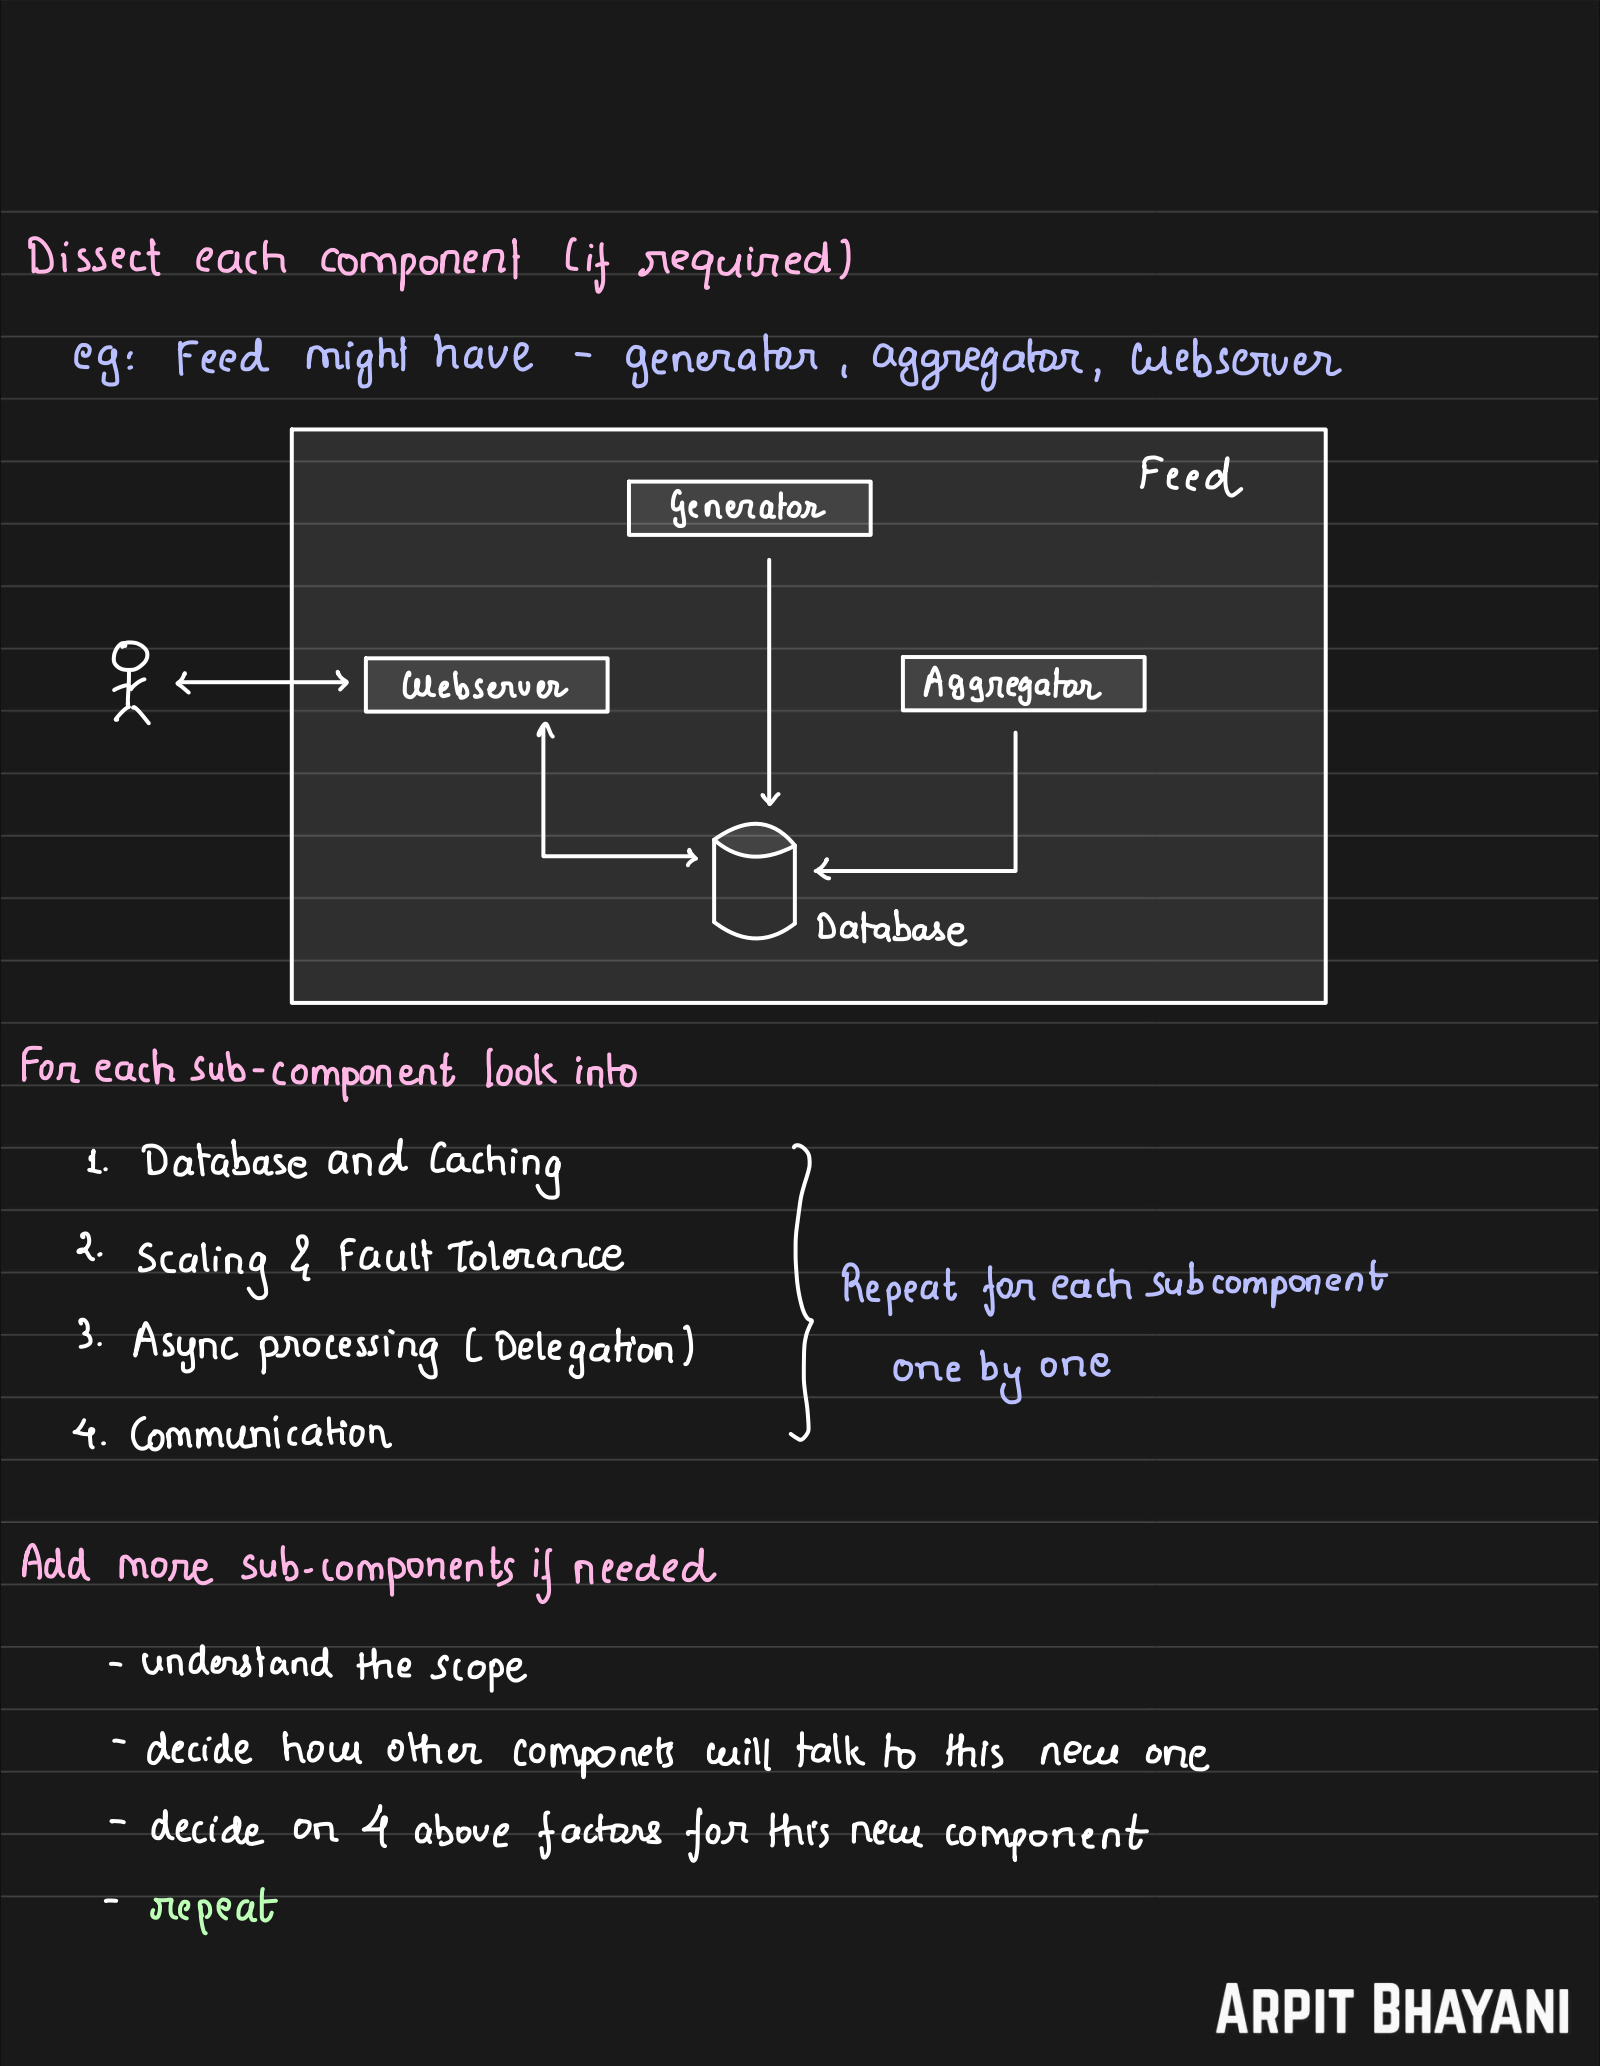 Dissect each component (if required)
eg: Feed might have - generator, aggregator, webserver
Feed
Generator
Webserver
Aggregator
Database
For each sub-component look into
1. Database and Caching
2. Scaling & Fault Tolerance
3. Async processing (Delegation)
4. Communication
Repeat for each subcomponent
one by one
Add more sub-components if needed
- understand the scope
- decide how other componets will talk to this new one
- decide on 4 above factors for this new component
- repeat
ARPIT BHAYANI